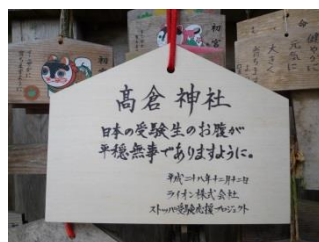 髙倉神社
日本の受験生のお腹が
平穏無事でありますように。
平成二十八年十二月十二日
ライオン株式会社
ストッパ受験応援プロジェクト
初宮
命
健やかに
元気に
大きく